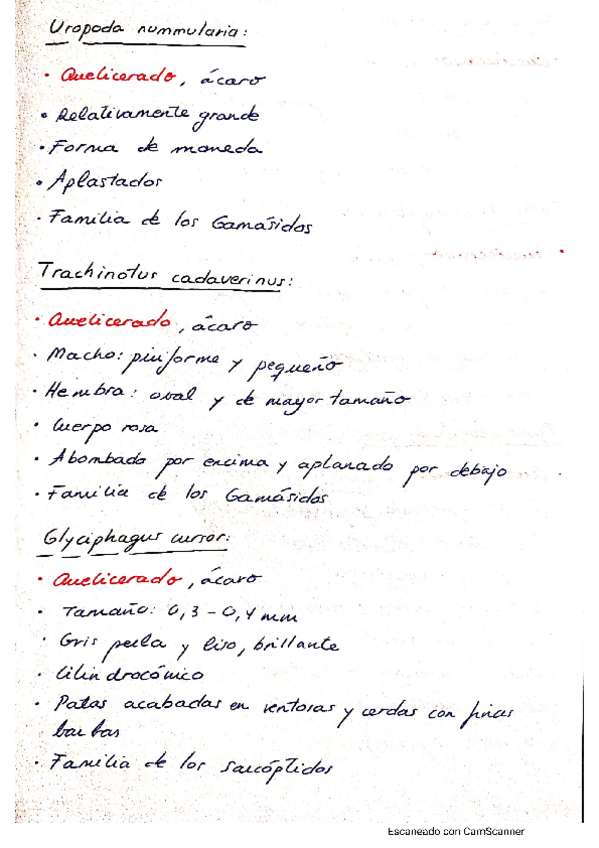 Uropoda nummularia:
· Quelicerado, ácaro
· Relativamente grande
· Forma de moneda
· Aplastados
· Familia de los Gamásidos
Trachinotus cadaverinus:
· Quelicerado, ácaro
· Macho: piriforme y pequeño
· Hembra: oval y de mayor tamaño
· Cuerpo rosa
· Abombado por encima y aplanado por debajo
· Familia de los Gamásidos
Glyciphagus cursor:
· Quelicerado, ácaro
· Tamaño: 0,3 - 0,4 mm
· Gris perla y liso, brillante
· Cilindrocónico
· Patas acabadas en ventosas y cerdas con finas
barbas
· Familia de los sarcóptidos
Escaneado con CamScanner